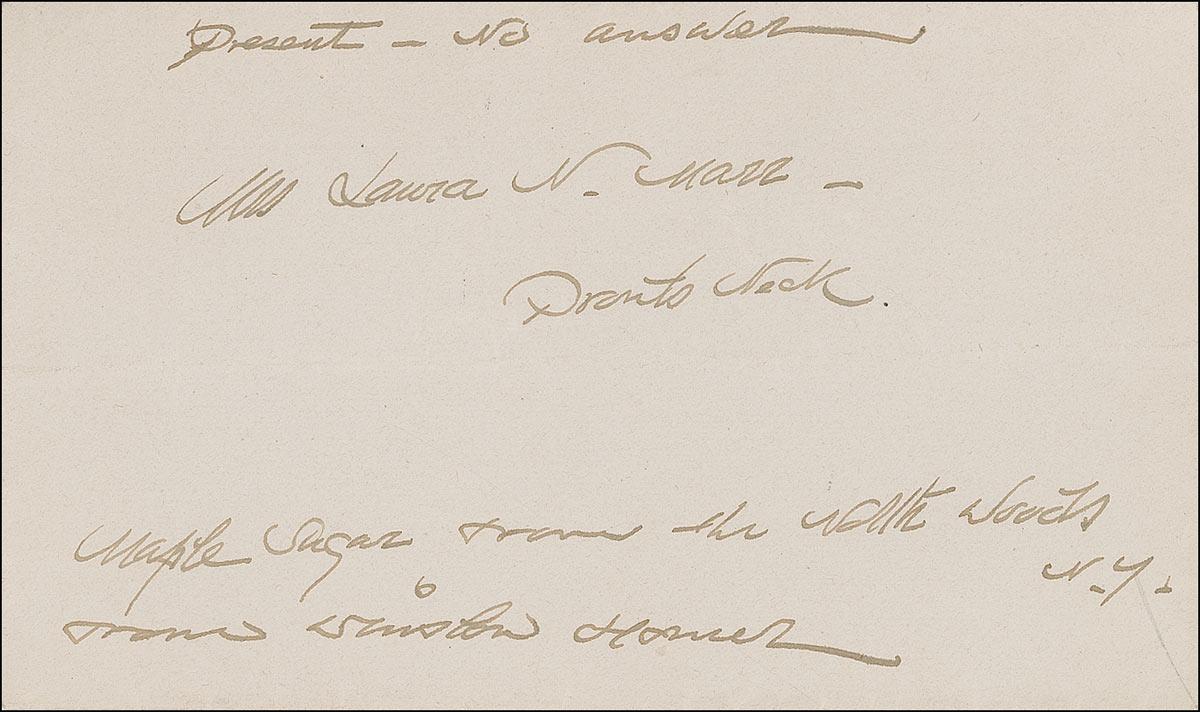 Present - No answer
Mrs Laura N. Marr -
Prouts Neck.
Maple Sugar from the North Woods
N.Y.
from Winslow Homer